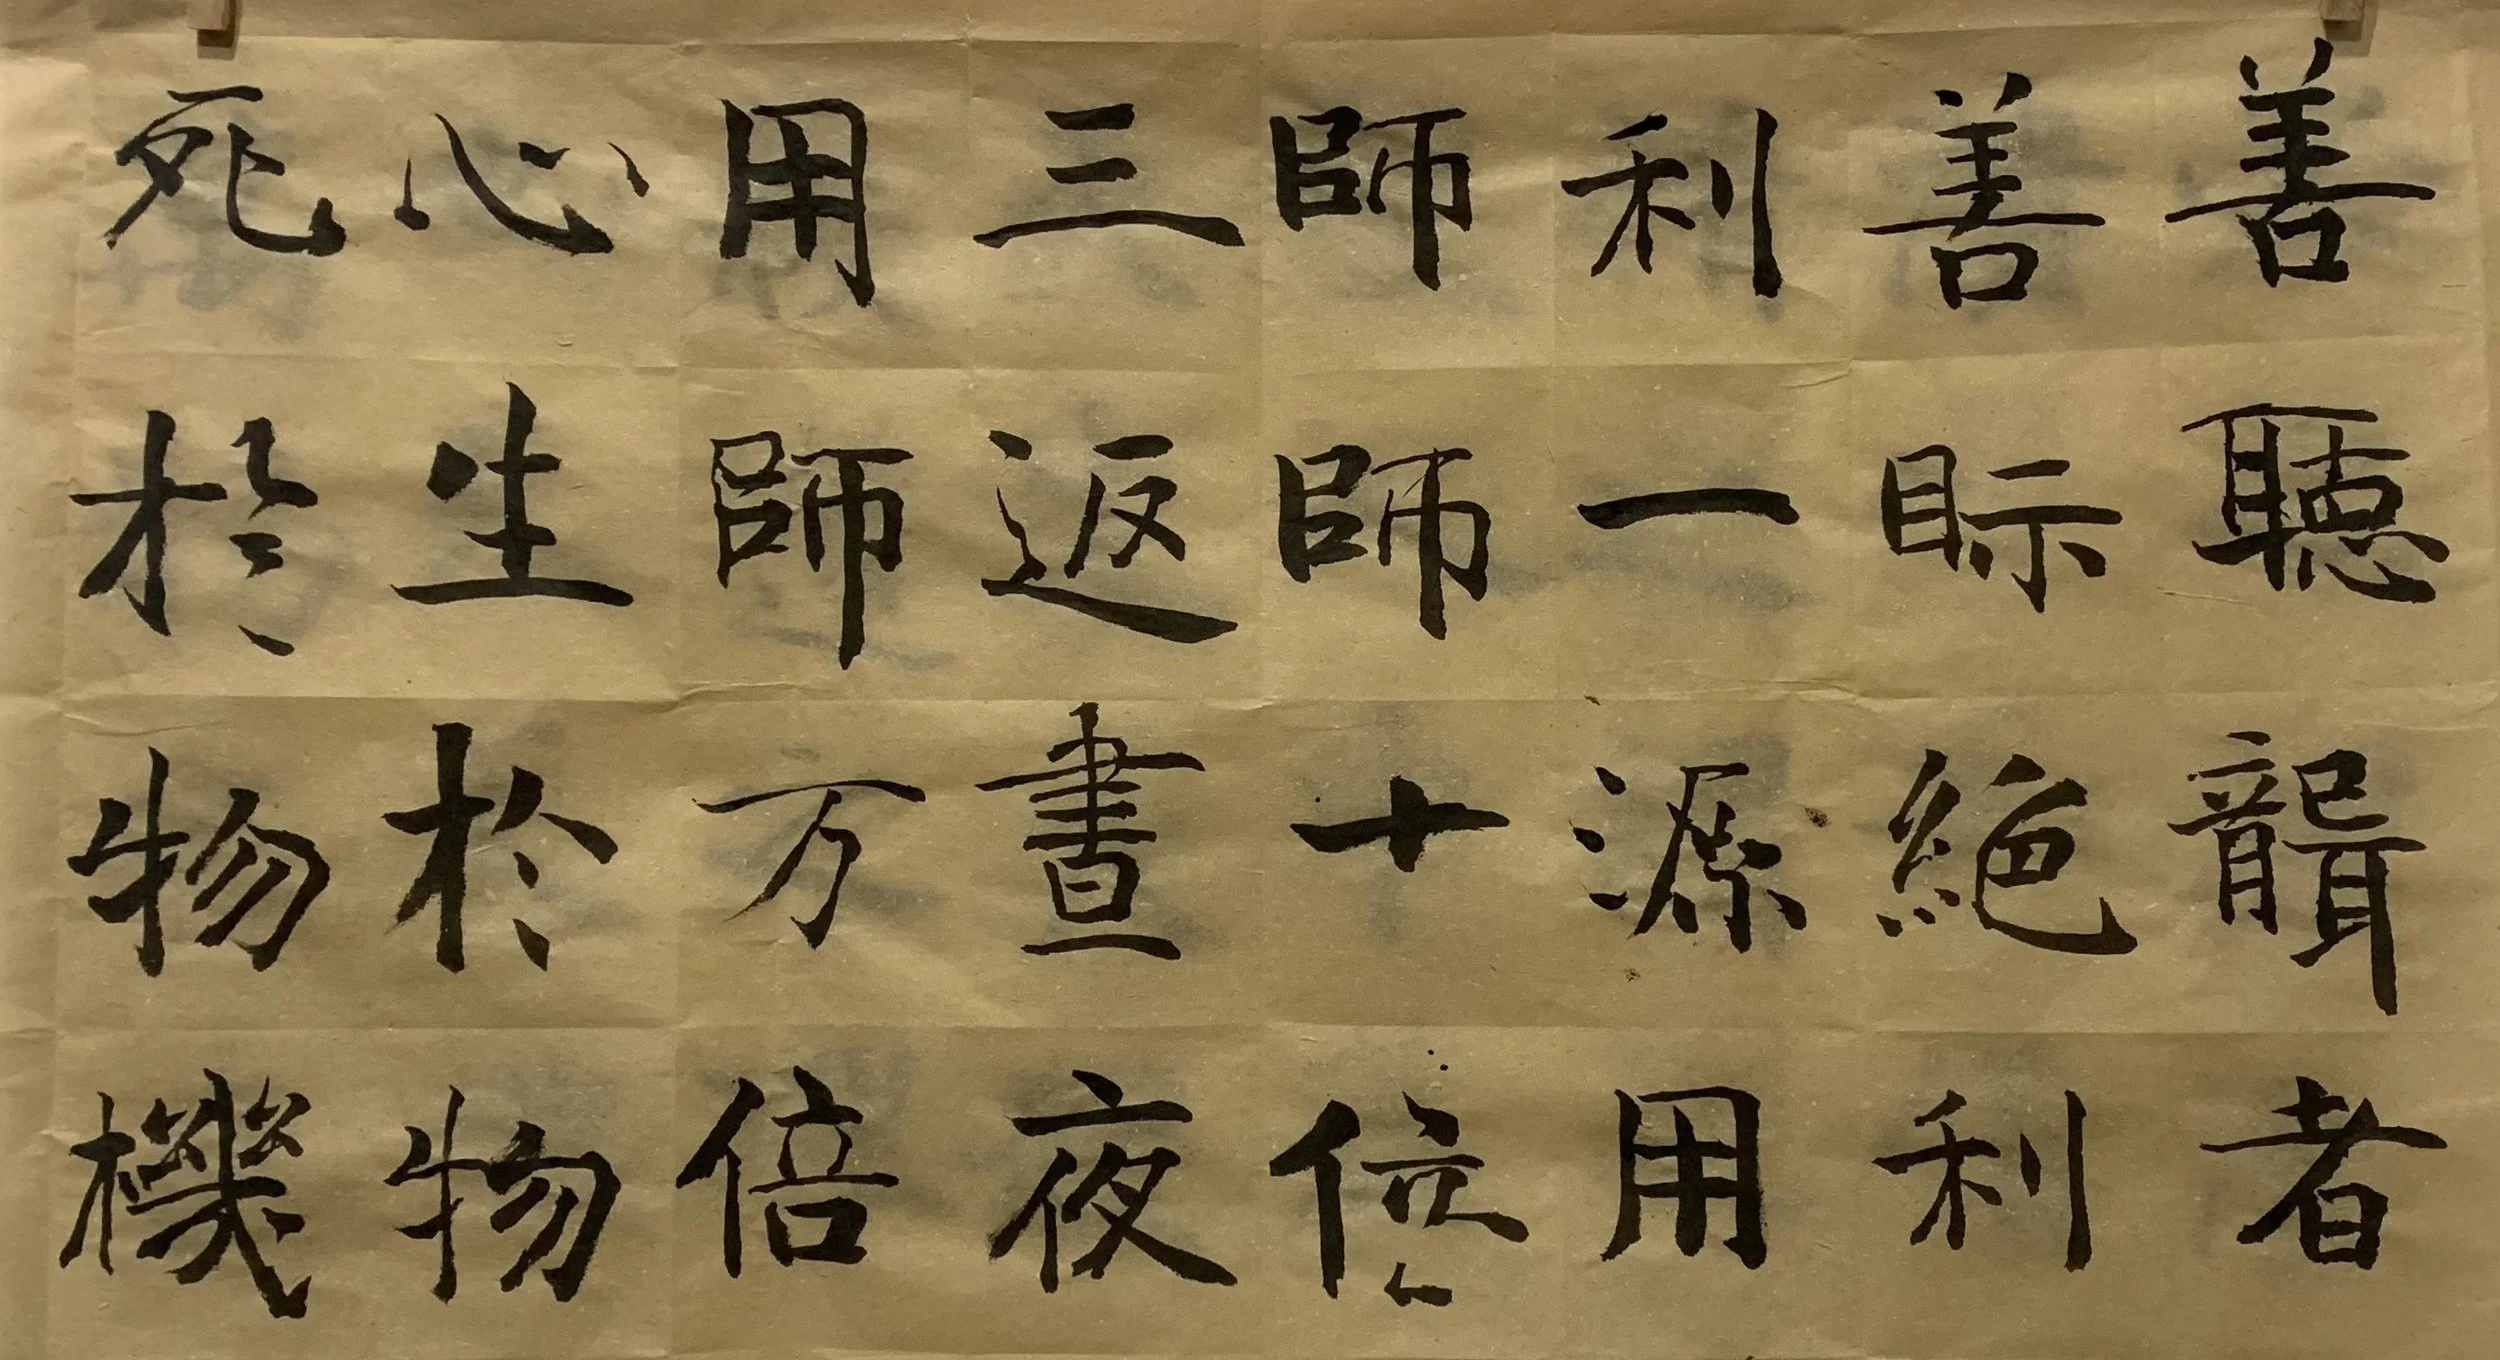 善聽聾者
善眎絶利
利一源用
師師十倍
三返晝夜
用師万倍
心生於物
死於物機